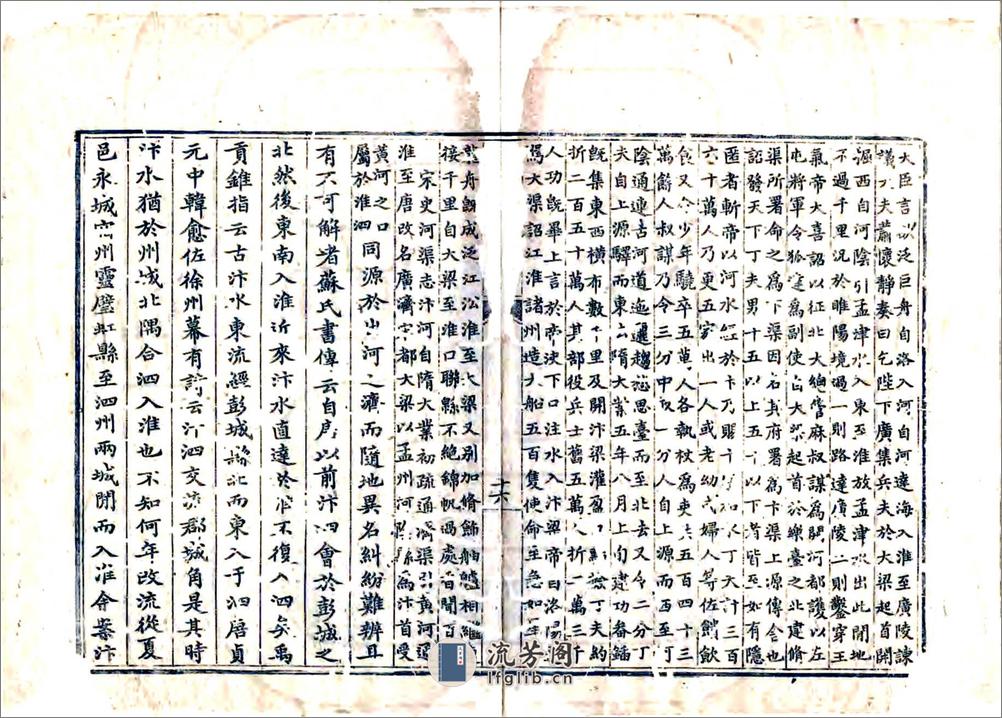 大臣言以泛巨舟自洛入河自河達海入淮至廣陵諫
議大夫蕭懷靜奏曰乞陛下廣集兵夫於大梁起首開
源西自河陰引孟津水入東至淮放孟津水出此間地
不過千里況於睢陽境過一則路達廣陵二則鑿穿王
氣帝大喜詔以征北大總管麻叔謀為開河都護以左
屯將軍令狐達為副使自大梁起首於樂臺之北建脩
渠所署命之為下渠因名其府署為卞渠上源傳舍也
詔發天下丁夫男十五以上五十以下者皆至如有隱
匿者斬帝以河水經於卞乃賜卞字加水丁夫計三百
六十萬人乃更五家出一人或老幼或婦人等佐饋飲
食又令少年驍卒五萬人各執杖為吏共五百四十三
萬餘人叔謀乃令三分中取一分人自上源而西至河
陰通連古河道迤邐趨愁思臺而至北去又令二分丁
夫自上源驛而東去隋大業五年八月上旬建功畚鍤
既集東西橫布數千里及開汴梁灌盈口 點檢丁夫約
折二百五十萬人其部役兵士舊五萬人折二萬三千
人功既畢上言於帝決下口注水入汴梁帝自洛陽
駕大渠詔江淮諸州造大船五百隻使命至急如星
十六
龍舟既成泛江沿淮至大梁又別加脩飾舳艫相繼
接千里自大梁至淮口聯縣不絕錦帆過處香聞百里
宋史河渠志汴河自隋大業初疏通濟渠引黃河通
淮至唐改名廣濟宋都大梁以孟州河陰縣為汴首受
黃河之口
屬於淮泗 同源於出河之濟而隨地異名糾紛難辨且
有不可解者蘇氏書傳云自唐以前汴泗會於彭城之
北然後東南入淮近來汴水直達於淮不復入泗矣禹
貢錐指云古汴水東流經彭城縣北而東入于泗唐貞
元中韓愈佐徐州幕有詩云汴泗交流郡城角是其時
汴水猶於州城北隅合泗入淮也不知何年改流從夏
邑永城宿州靈璧虹縣至泗州兩城間而入淮會案汴
流芳阁
lfglib.cn